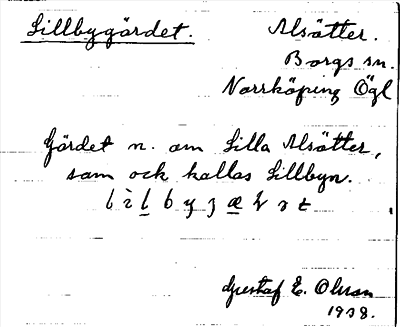 Lillbygärdet.
Alsätter.
Borgs sn.
Norrköping Ögl
Gärdet n. om Lilla Alsätter,
som och kallas Lillbyn.
Gustaf E. Olson
1938.